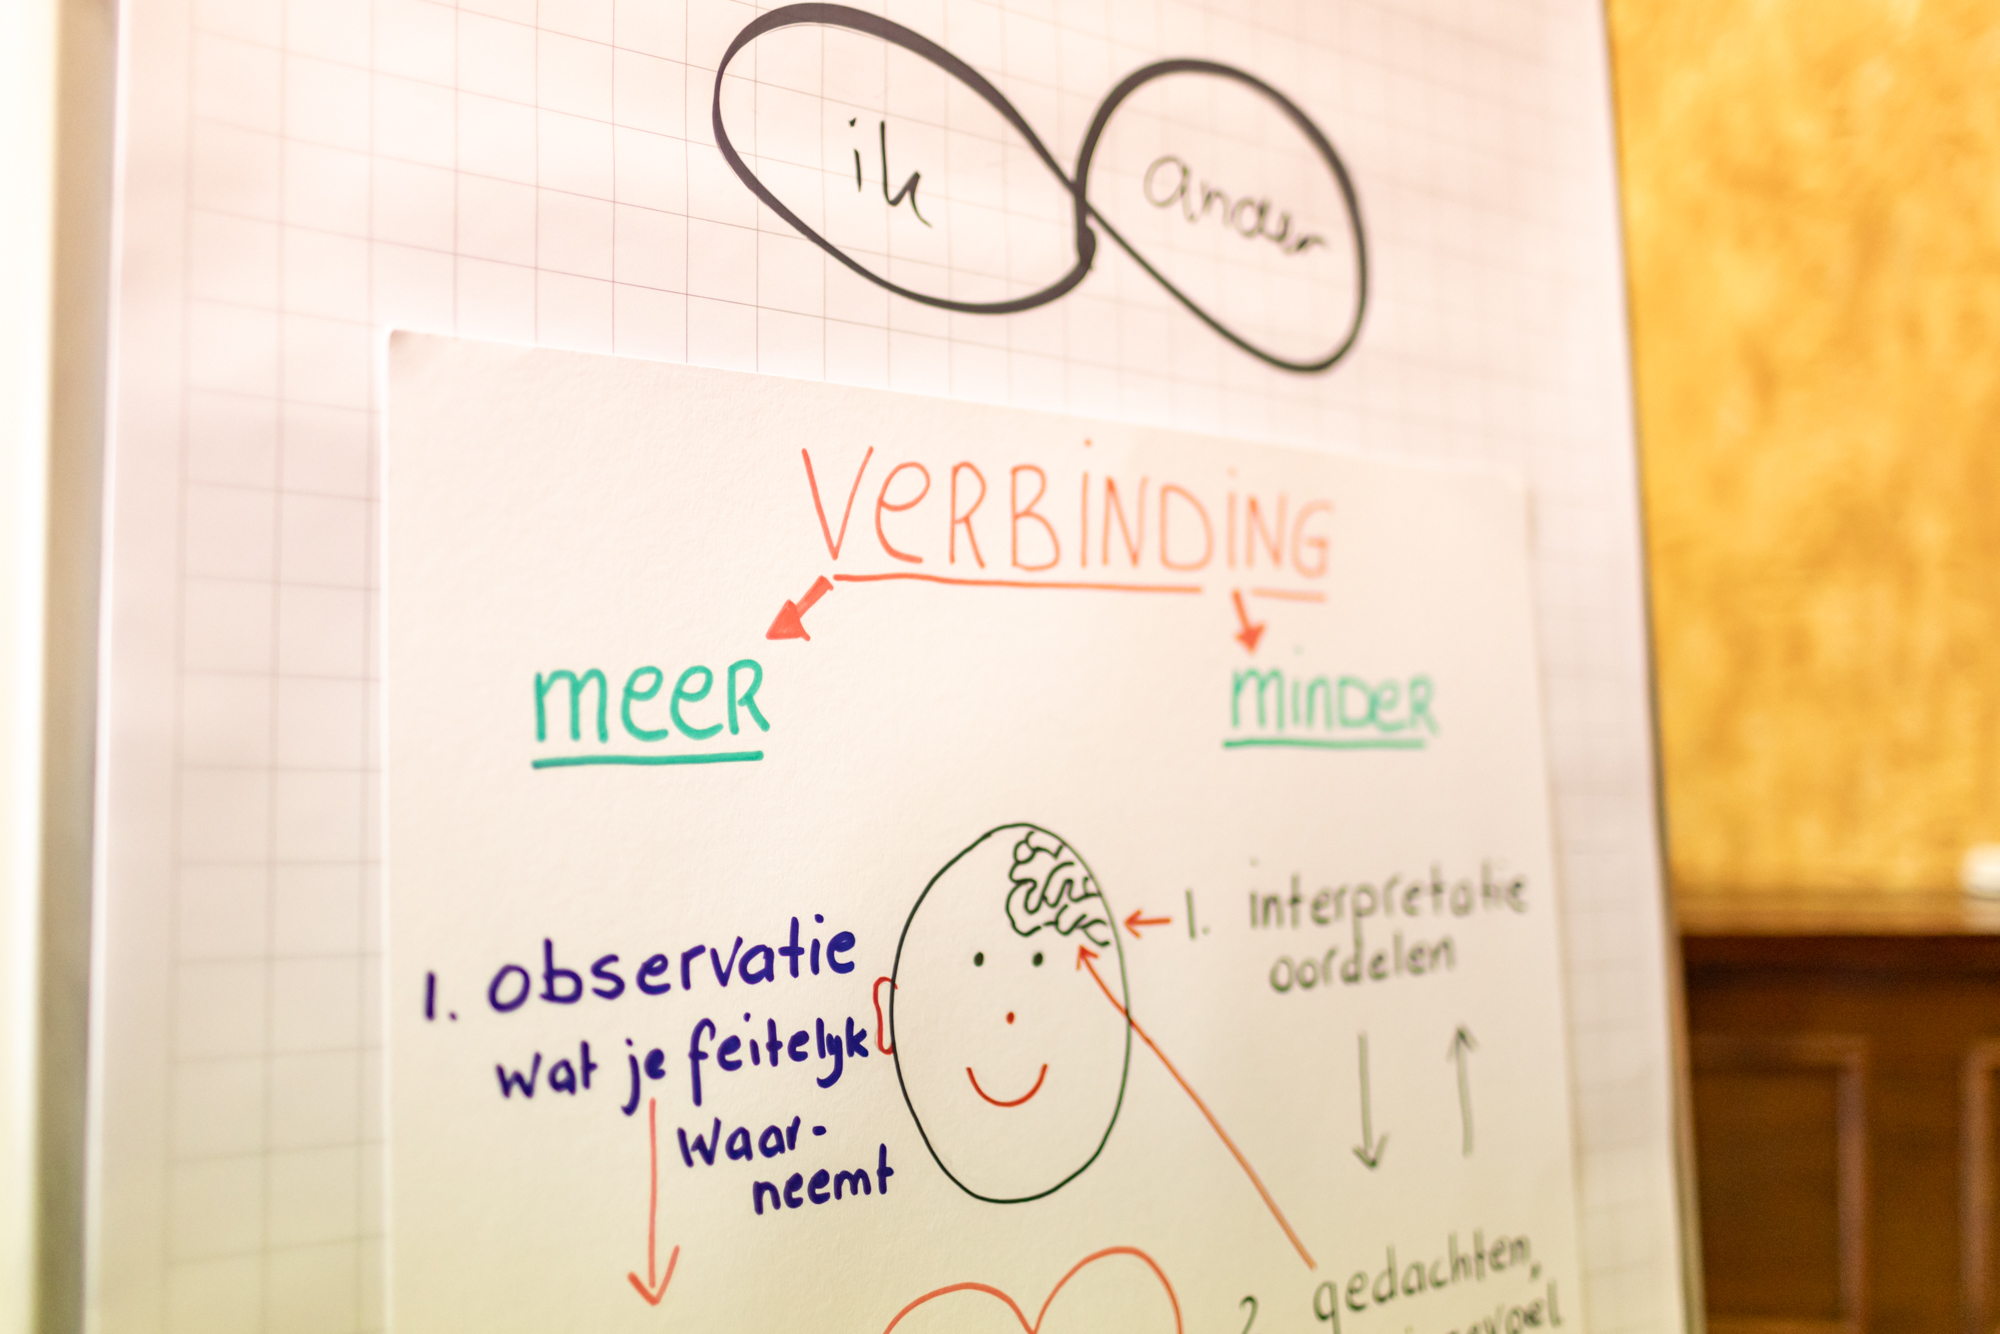 ik
ander
VERBINDING
MEER
MINDER
1. observatie
wat je feitelijk
waar-
neemt
1. interpretatie
oordelen
2 gedachten,